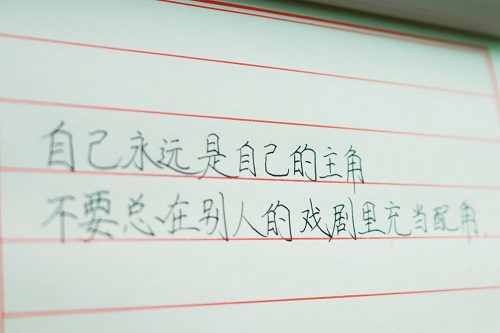 自己永远是自己的主角
不要总在别人的戏剧里充当配角.